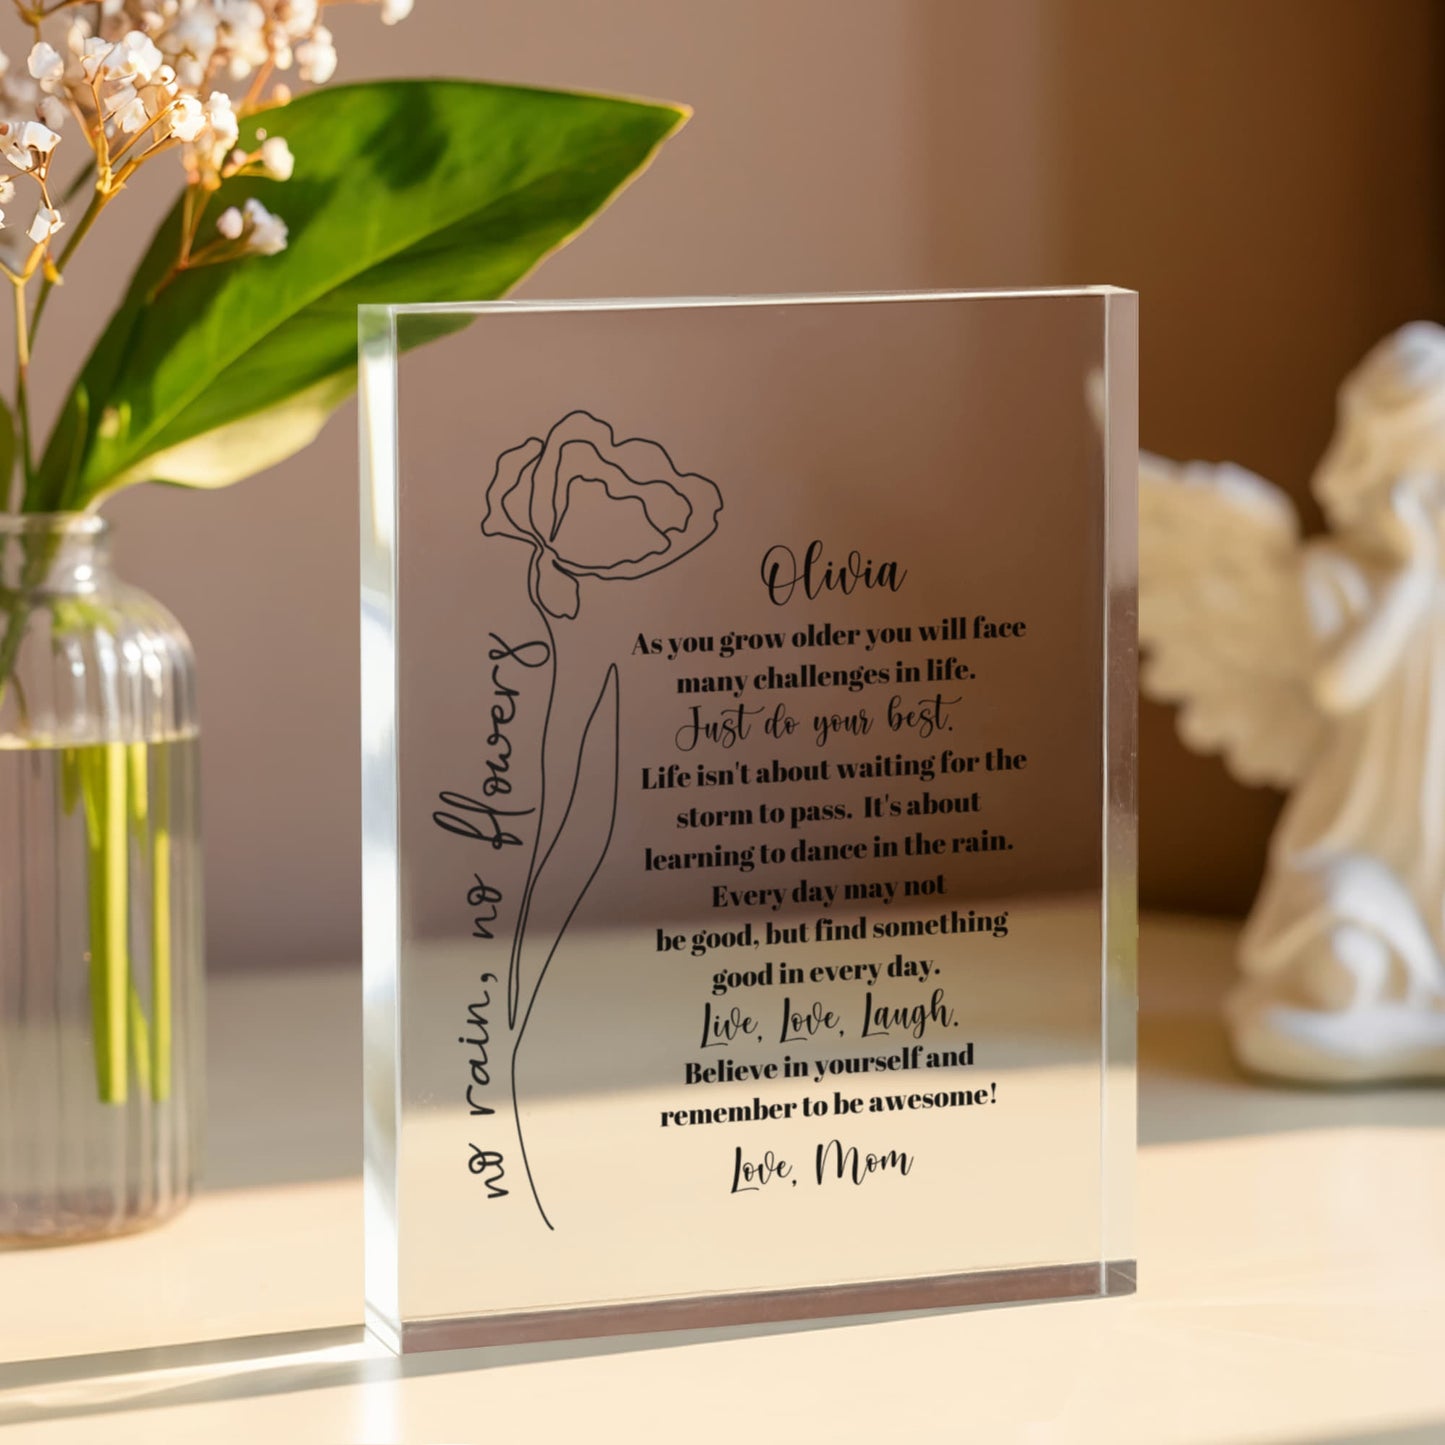 no rain, no flowers
Olivia
As you grow older you will face
many challenges in life.
Just do your best.
Life isn't about waiting for the
storm to pass. It's about
learning to dance in the rain.
Every day may not
be good, but find something
good in every day.
Live, Love, Laugh.
Believe in yourself and
remember to be awesome!
Love, Mom